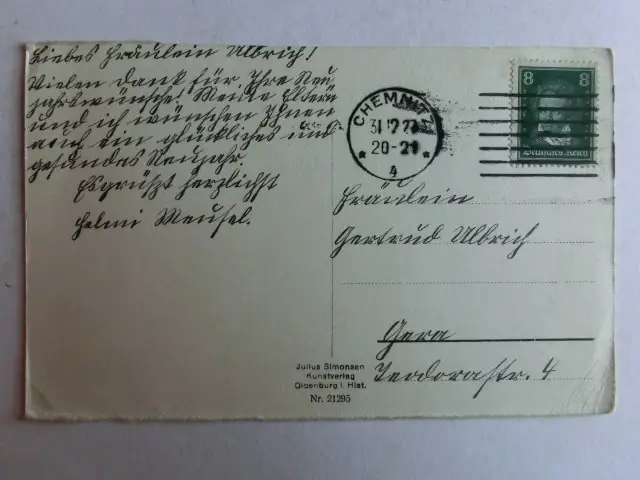 Liebes Fräulein Ulbrich!
Vielen Dank für Ihre Neu-
jahrswünsche! Meine Eltern
und ich wünschen Ihnen
auch ein glückliches und
gesundes Neujahr.
Es grüßt herzlichst
Helmi Meusel.
CHEMNITZ
31 12 27
20-21
* 4 *
8 8
Deutsches Reich
Fräulein
Gertrud Ulbrich
Gera
Teodorastr. 4
Julius Simonsen
Kunstverlag
Oldenburg i. Hlst.
Nr. 21295